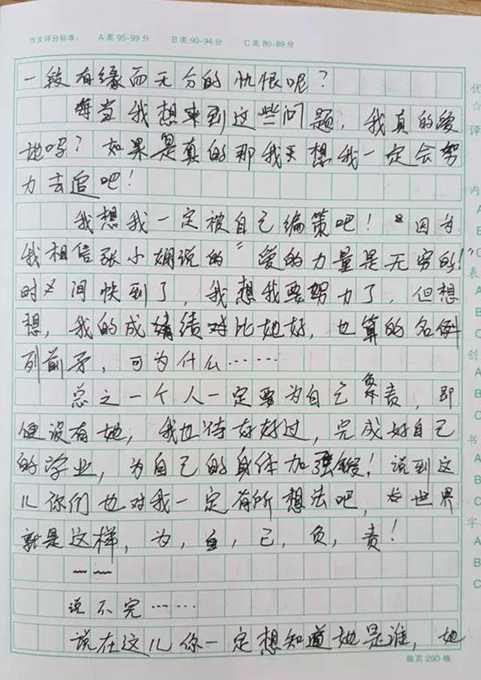 作文评分标准: A类95-99分 B类90-94分 C类80-89分
一段有缘而无分的仇恨呢?
每当我想来到这些问题,我真的爱
她吗?如果是真的那我天想我一定会努
力去追吧!
我想我一定被自己编策吧!因为
我相信张小娴说的“爱的力量是无穷的!”
时间快到了,我想我要努力了,但想
想,我的成绩对比她好,也算的名例
列前矛,可为什么……
总之一个人一定要为自己负责,即
便没有她,我也待好好过,完成好自己
的学业,为自己的身体加强锻!说到这
儿你们也对我一定有所想法吧,世界
就是这样,为,自,己,负,责!
~~
说不完……
说在这儿你一定想知道她是谁,她
每页290格
优
☆
评
内
A
B
C
表
A
B
C
创
A
B
书
A
B
C
字
A
B
C